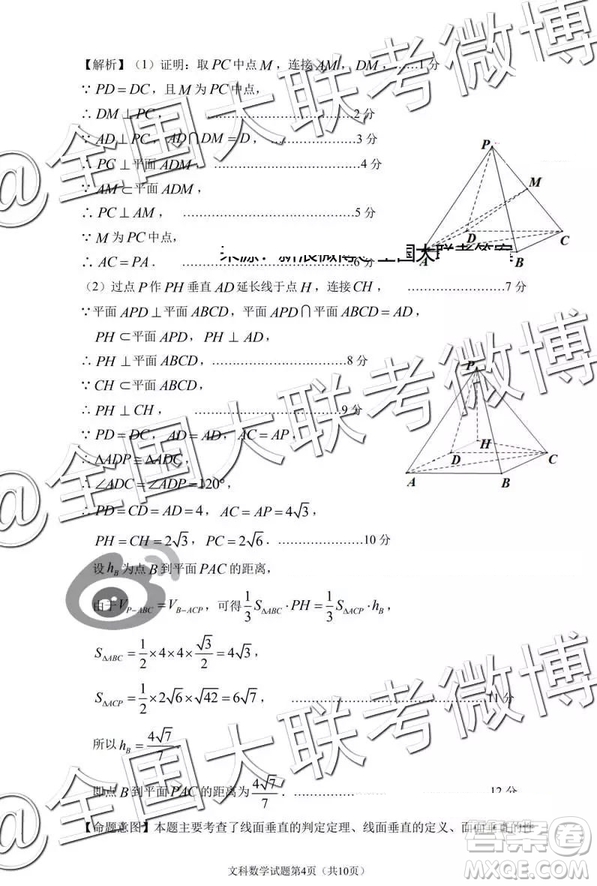 【解析】（1）证明：取 PC 中点 M，连接 AM，DM，……1分
∵ PD = DC，且 M 为 PC 中点，
∴ DM ⊥ PC，……………………2分
∵ AD ⊥ PC，AD ∩ DM = D，……………………3分
∴ PC ⊥ 平面 ADM，……………………4分
∵ AM ⊂ 平面 ADM，
∴ PC ⊥ AM，……………………5分
∵ M 为 PC 中点，
∴ AC = PA．……………………6分
（2）过点 P 作 PH 垂直 AD 延长线于点 H，连接 CH，……………………7分
∵ 平面 APD ⊥ 平面 ABCD，平面 APD ∩ 平面 ABCD = AD，
PH ⊂ 平面 APD，PH ⊥ AD，
∴ PH ⊥ 平面 ABCD，……………………8分
∵ CH ⊂ 平面 ABCD，
∴ PH ⊥ CH，……………………9分
∵ PD = DC，AD = AD，AC = AP，
∴ ΔADP ≅ ΔADC，
∴ ∠ADC = ∠ADP = 120°，
∴ PD = CD = AD = 4，AC = AP = 4√3，
PH = CH = 2√3，PC = 2√6．……………………10分
设 h_B 为点 B 到平面 PAC 的距离，
由于 V_{P-ABC} = V_{B-ACP}，可得 1/3 S_{ΔABC} · PH = 1/3 S_{ΔACP} · h_B，
S_{ΔABC} = 1/2 × 4 × 4 × √3/2 = 4√3，
S_{ΔACP} = 1/2 × 2√6 × √42 = 6√7，……………………11分
所以 h_B = 4√7/7
即点 B 到平面 PAC 的距离为 4√7/7．……………………12分
【命题意图】本题主要考查了线面垂直的判定定理、线面垂直的定义、面面垂直的性
文科数学试题第4页（共10页）
P
M
D
C
A
B
P
H
D
C
A
B
@全国大联考微博
@全国大联考微博
@全国大联考微博
答案圈
MXQE.COM